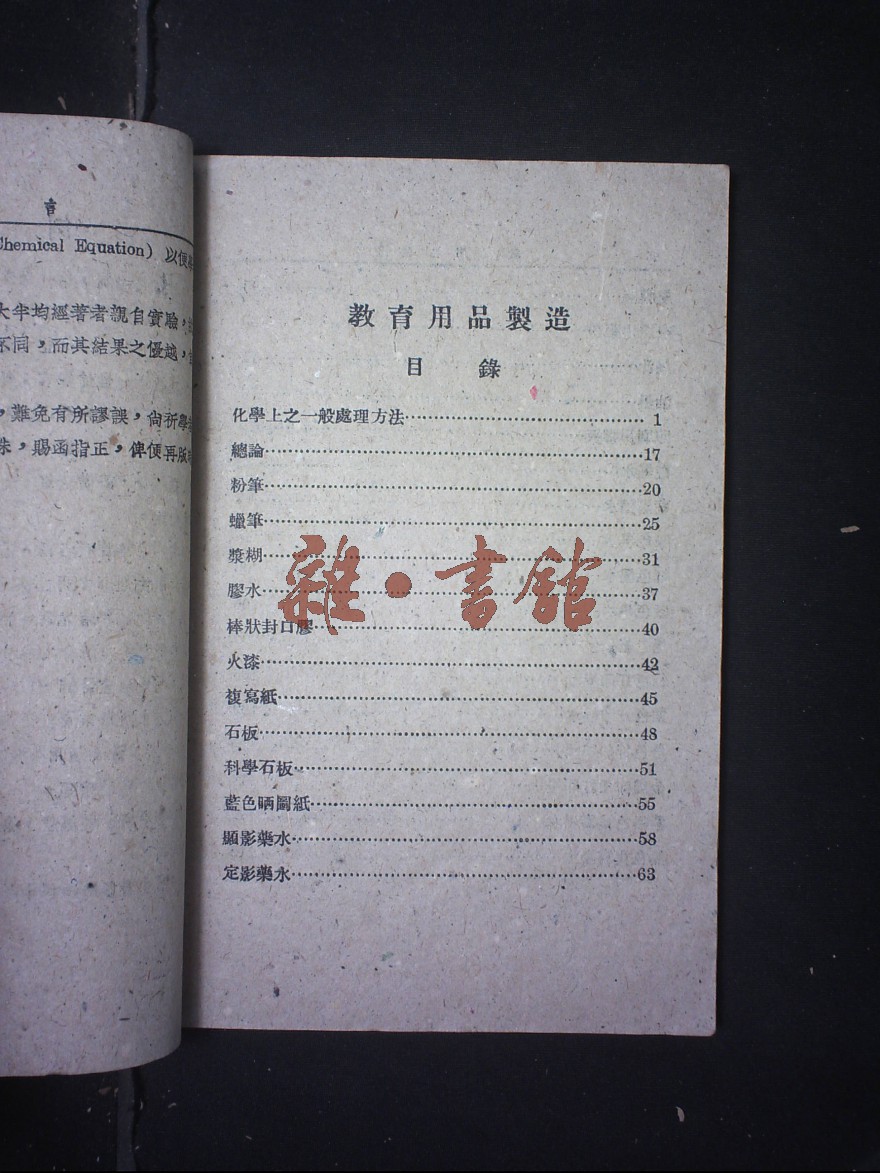 言
Chemical Equation) 以便
大半均經著者親自實驗，
不同，而其結果之優越，
，難免有所謬誤，尙祈學
，賜函指正，俾便再版
教育用品製造
目錄
化學上之一般處理方法⋯⋯⋯⋯⋯⋯⋯⋯ 1
總論⋯⋯⋯⋯⋯⋯⋯⋯17
粉筆⋯⋯⋯⋯⋯⋯⋯⋯20
蠟筆⋯⋯⋯⋯⋯⋯⋯⋯25
漿糊⋯⋯⋯⋯⋯⋯⋯⋯31
膠水⋯⋯⋯⋯⋯⋯⋯⋯37
棒狀封口膠⋯⋯⋯⋯⋯⋯⋯⋯40
火漆⋯⋯⋯⋯⋯⋯⋯⋯42
複寫紙⋯⋯⋯⋯⋯⋯⋯⋯45
石板⋯⋯⋯⋯⋯⋯⋯⋯48
科學石板⋯⋯⋯⋯⋯⋯⋯⋯51
藍色晒圖紙⋯⋯⋯⋯⋯⋯⋯⋯55
顯影藥水⋯⋯⋯⋯⋯⋯⋯⋯58
定影藥水⋯⋯⋯⋯⋯⋯⋯⋯63
雜·書館